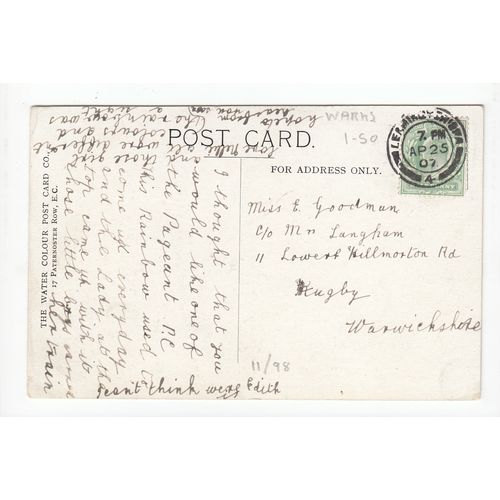 POST CARD.
FOR ADDRESS ONLY.
THE WATER COLOUR POST CARD CO.,
17 PATERNOSTER ROW, E.C.
WARKS
1-50
LEAMINGTON
7. PM
AP 25
07
4
Miss E. Goodman
c/o Mrs Langham
11 Lower Hillmorton Rd
Rugby
Warwickshire
11/98
I thought that you
would like one of
the Pageant P.C
this Rainbow used to
come up everyday
and the Lady at the
top came up with it
those little boys
her train
and those girl
were different
colours and
the rainbow was
hope
love Millie
cant think were Edith